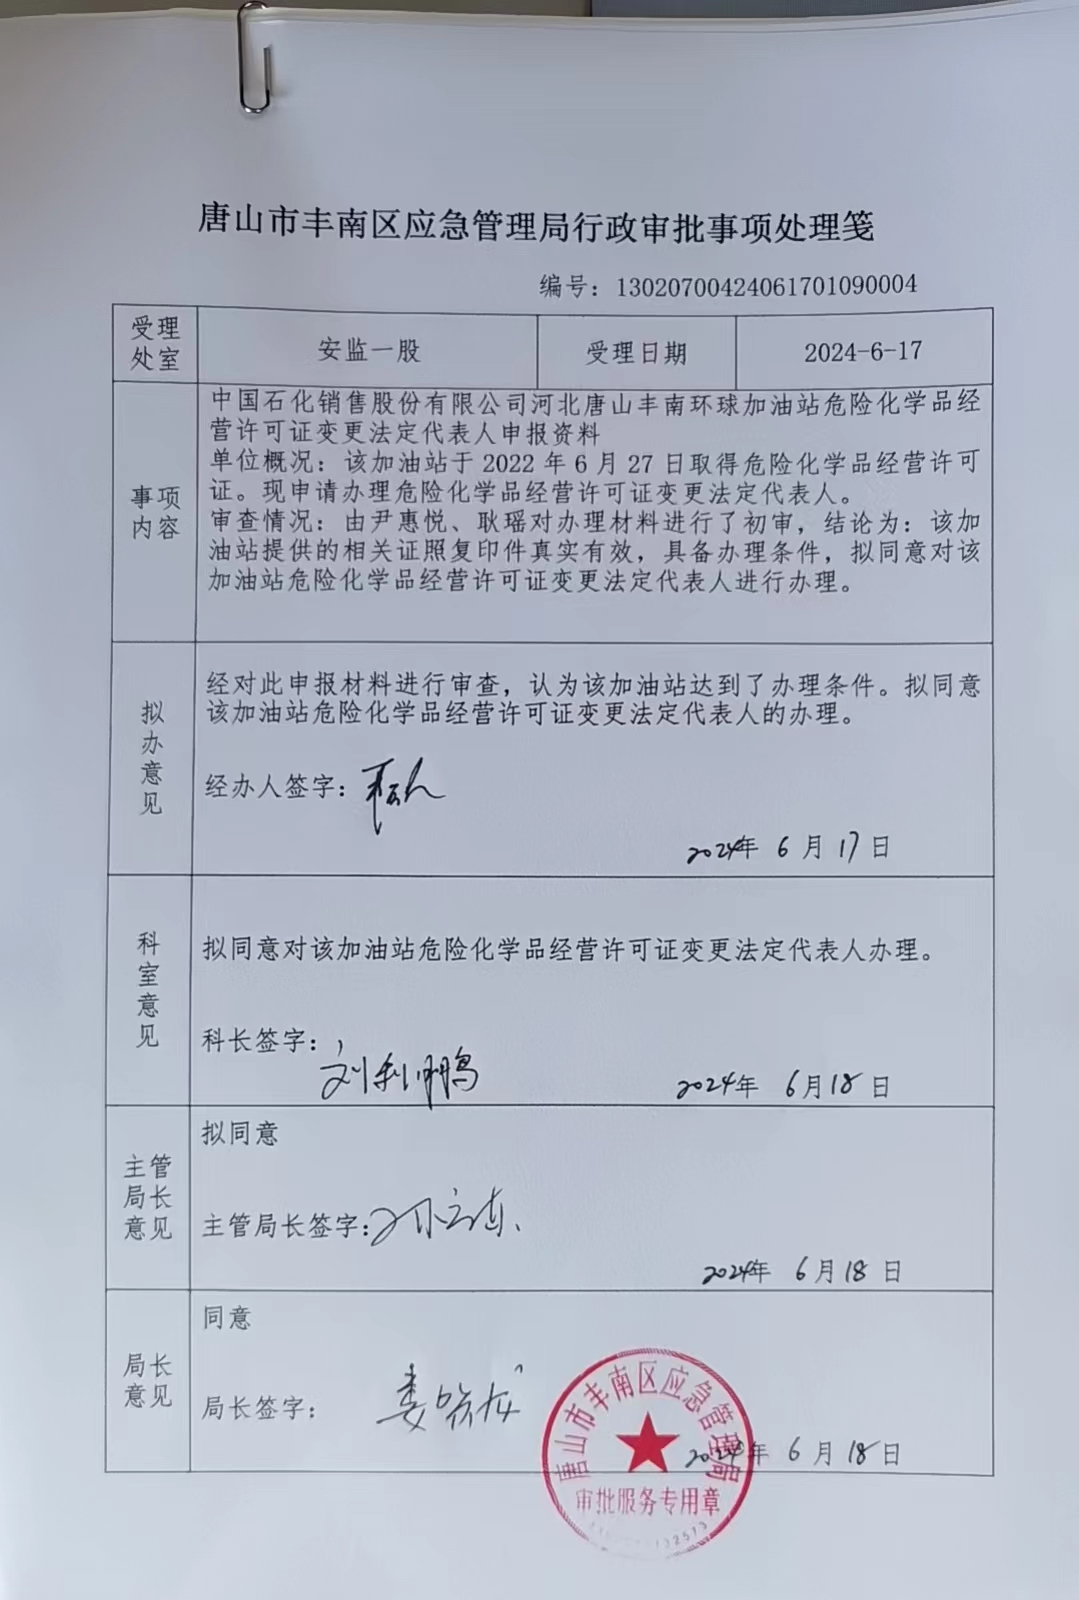 唐山市丰南区应急管理局行政审批事项处理笺
编号：13020700424061701090004
受理
处室
安监一股
受理日期
2024-6-17
事项
内容
中国石化销售股份有限公司河北唐山丰南环球加油站危险化学品经
营许可证变更法定代表人申报资料
单位概况：该加油站于 2022 年 6 月 27 日取得危险化学品经营许可
证。现申请办理危险化学品经营许可证变更法定代表人。
审查情况：由尹惠悦、耿瑶对办理材料进行了初审，结论为：该加
油站提供的相关证照复印件真实有效，具备办理条件，拟同意对该
加油站危险化学品经营许可证变更法定代表人进行办理。
拟
办
意
见
经对此申报材料进行审查，认为该加油站达到了办理条件。拟同意
该加油站危险化学品经营许可证变更法定代表人的办理。
经办人签字：
2024年 6 月 17 日
科
室
意
见
拟同意对该加油站危险化学品经营许可证变更法定代表人办理。
科长签字：
刘利鹏
2024年 6月18 日
主管
局长
意见
拟同意
主管局长签字：
2024年 6 月 18 日
局长
意见
同意
局长签字：
2024年 6 月 18 日
唐山市丰南区应急管理局
审批服务专用章